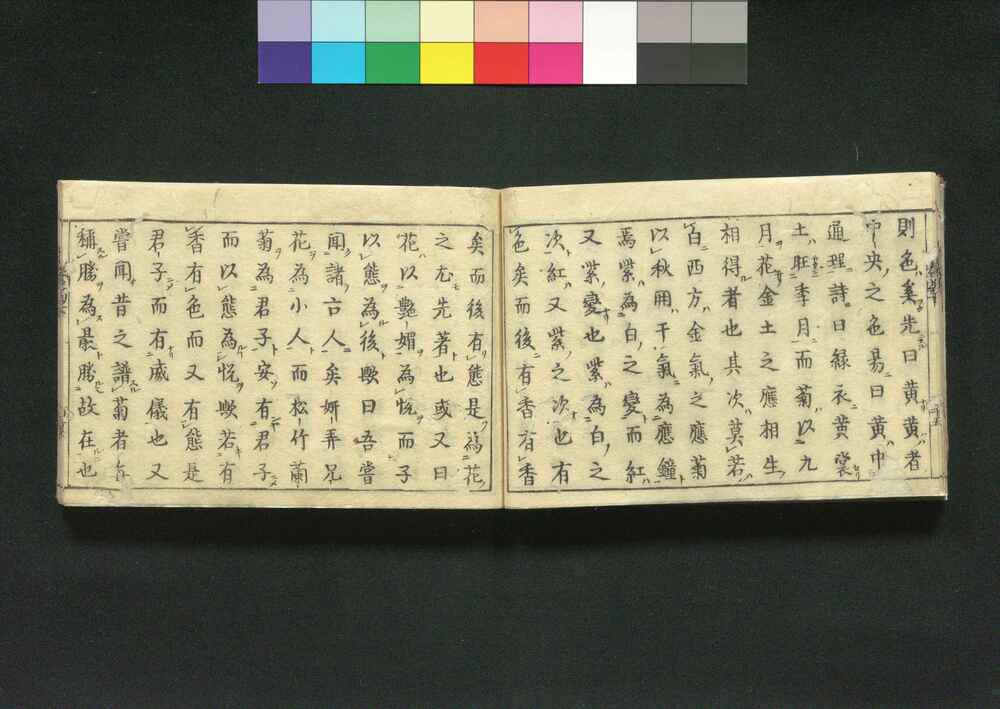 則色奚先曰黄黄者
中央之色易曰黄中
通理詩曰緑衣黄裳
土旺季月而菊以九
月花金土之應相生
相得者也其次莫若
白西方金氣之應菊
以秋用于氣為應鐘
焉紫為白之變而紅
又紫變也紫為白之
次紅又紫之次也有
色矣而後有香有香
矣而後有態是為花
之尤先著也或又曰
花以艷媚為悦而子
以態為後歟曰吾嘗
聞諸古人矣妍卉凡
花為小人而松竹蘭
菊為君子安有君子
而以態為悦歟若有
香有色而又有態是
君子而有威儀也又
嘗聞昔之譜菊者各
稱勝為最勝故在也